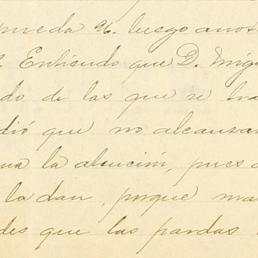 pueda ir. luego anot
Entiendo que D. Migu
do de las que se ha
dió que no alcanzar
la atención, pues
la dan, porque ma
des que las pardas